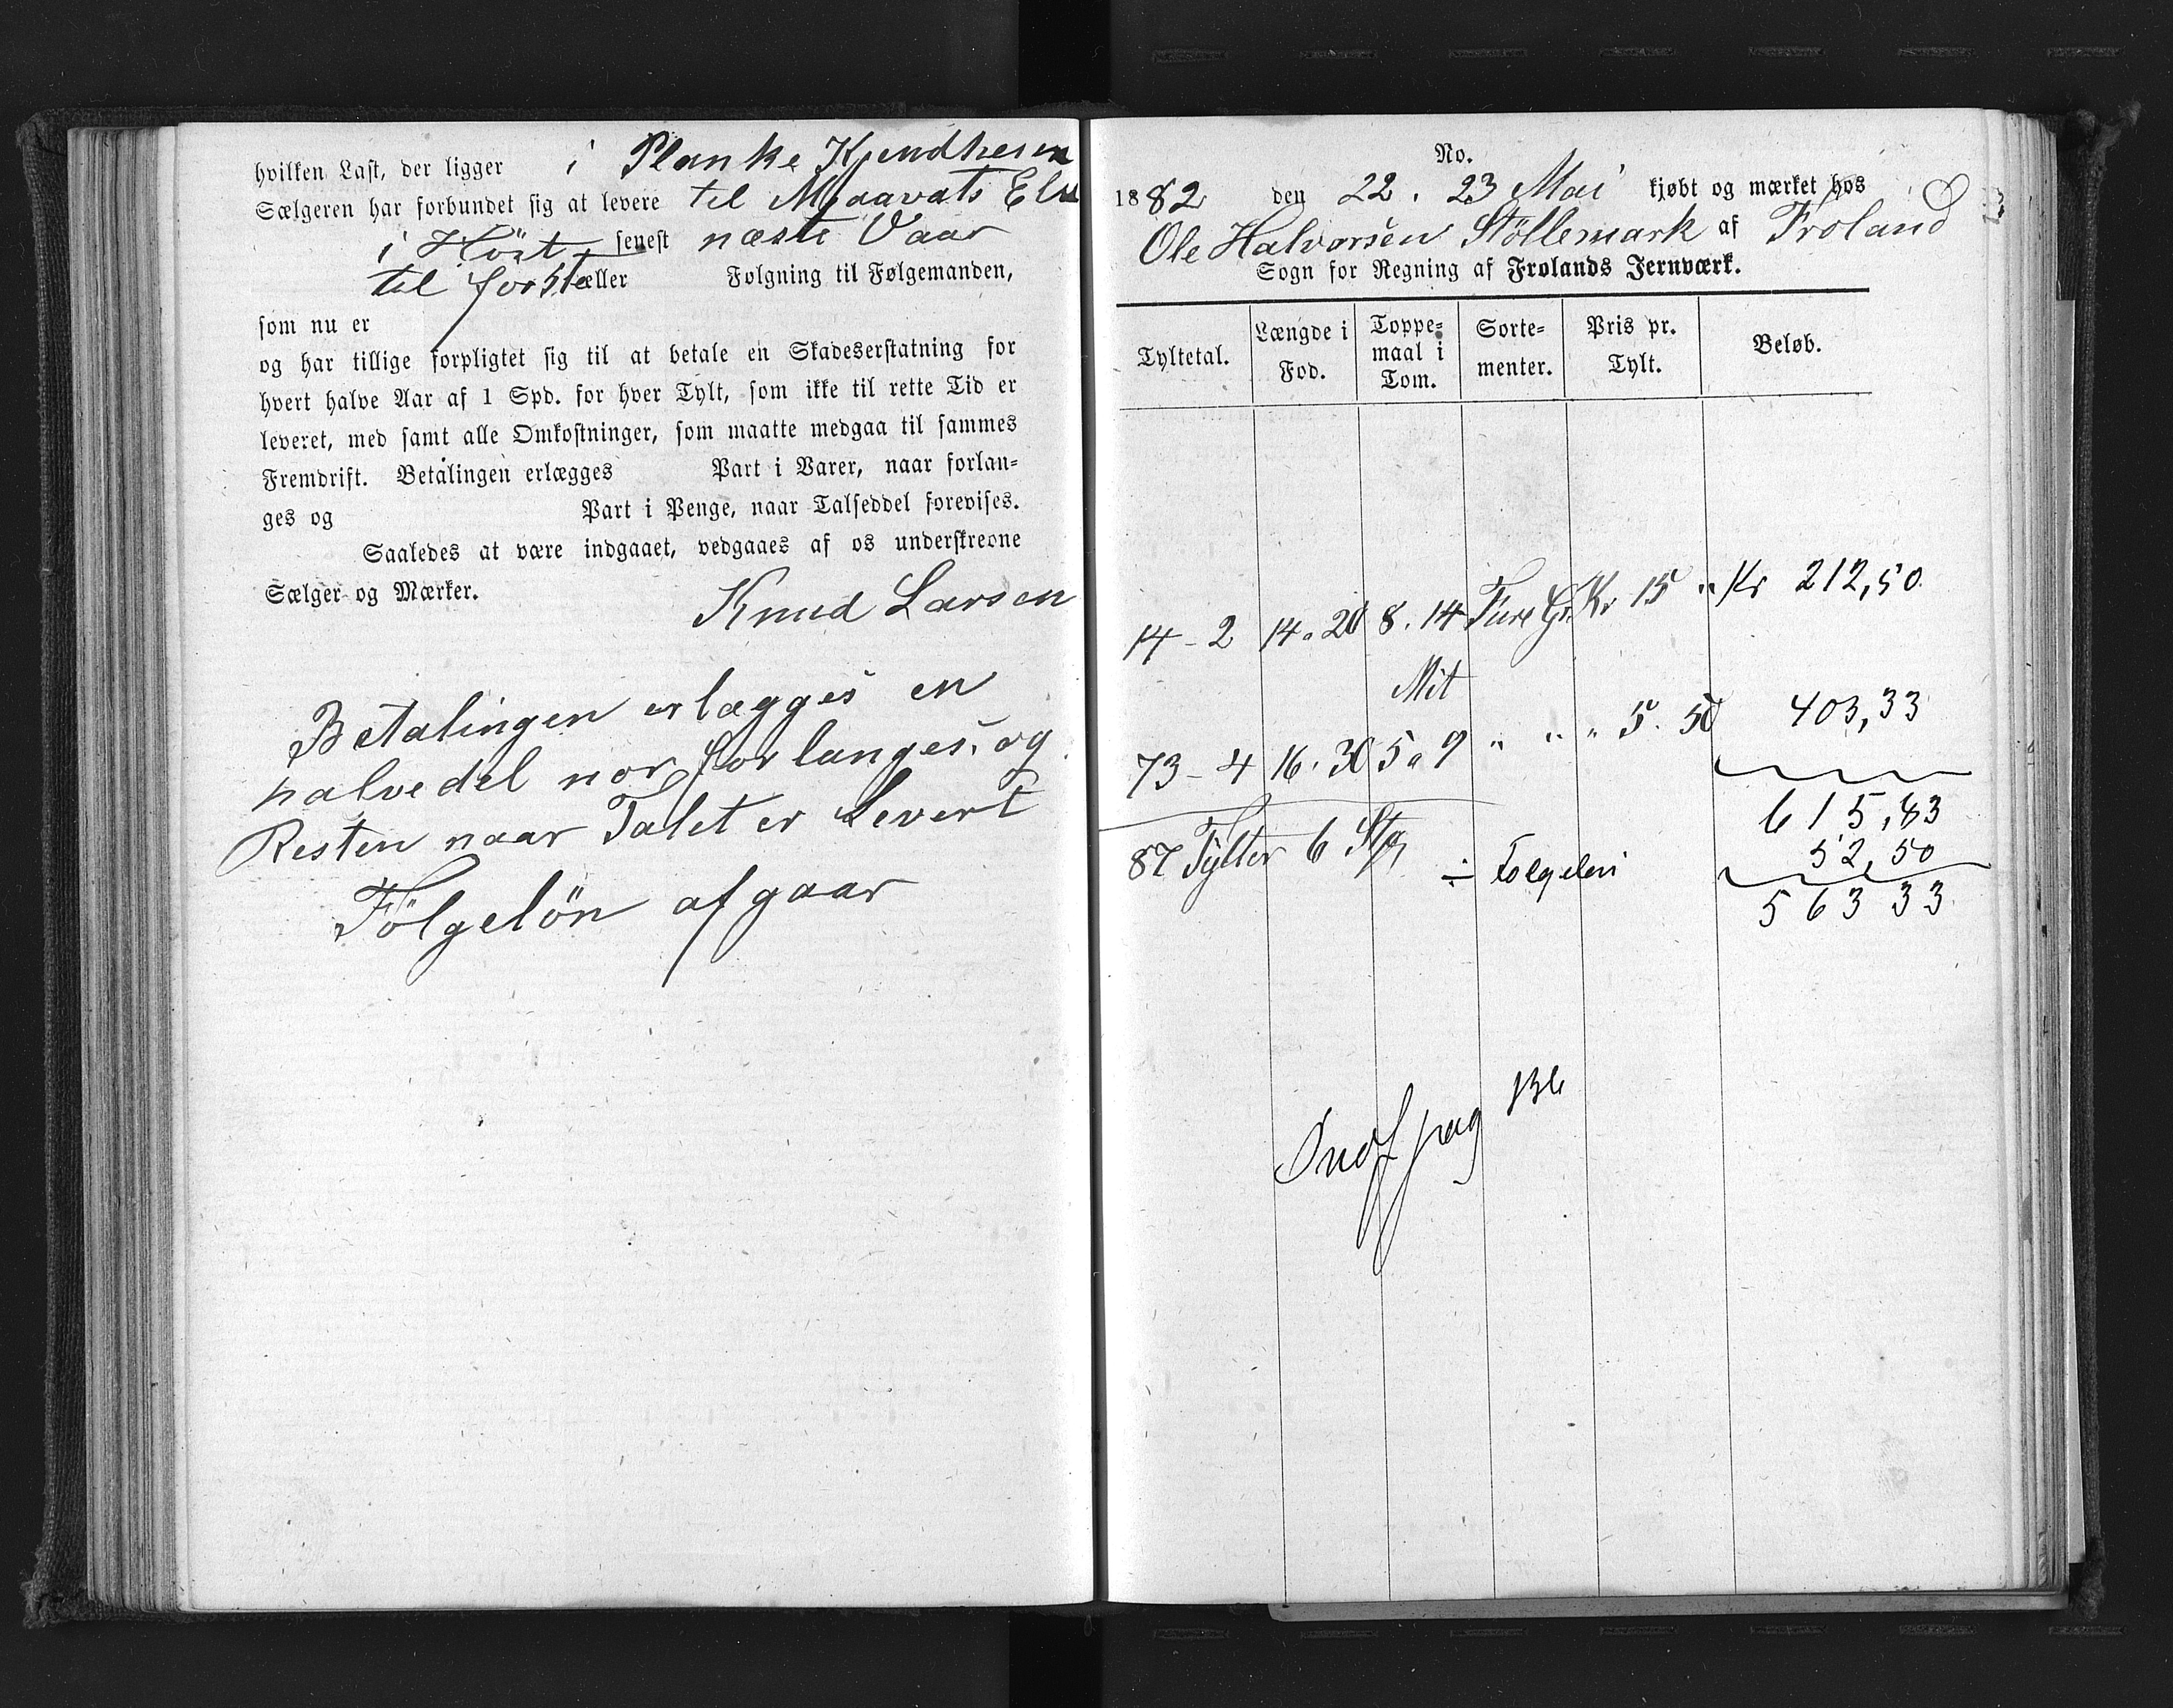 hvilken Last, der ligger i Planke Kjendhesen
Sælgeren har forbundet sig at levere til Mjaavats Elv
i Höst senest næste Vaar
til første eller Følgning til Følgemanden,
som nu er
og har tillige forpligtet sig til at betale en Skadeserstatning for
hvert halve Aar af 1 Spd. for hver Tylt, som ikke til rette Tid er
leveret, med samt alle Omkostninger, som maatte medgaa til sammes
Fremdrift. Betalingen erlægges Part i Varer, naar forlan=
ges og Part i Penge, naar Talseddel forevises.
Saaledes at være indgaaet, vedgaaes af os underskrevne
Sælger og Mærker.
Knud Larsen
Betalingen erlægges en
halvedel nor forlanges, og
Resten naar Talet er Levert
Fölgelön afgaar
No.
1882 den 22. 23 Mai kjøbt og mærket hos
Ole Halvorsen Stöllemark af Froland
Sogn for Regning af Frolands Jernværk.
Tyltetal. Længde i Fod. Toppe= maal i Tom. Sorte= menter. Pris pr. Tylt. Beløb.
14 - 2 14 a 20 8 . 14 Furu Kr 15 " Kr 212,50
Mit
73 - 4 16 . 30 5 a 9 " " " 5. 50 403,33
615,83
87 Tylter 6 Stk ÷ Følgeløn 52,50
563 33
pag